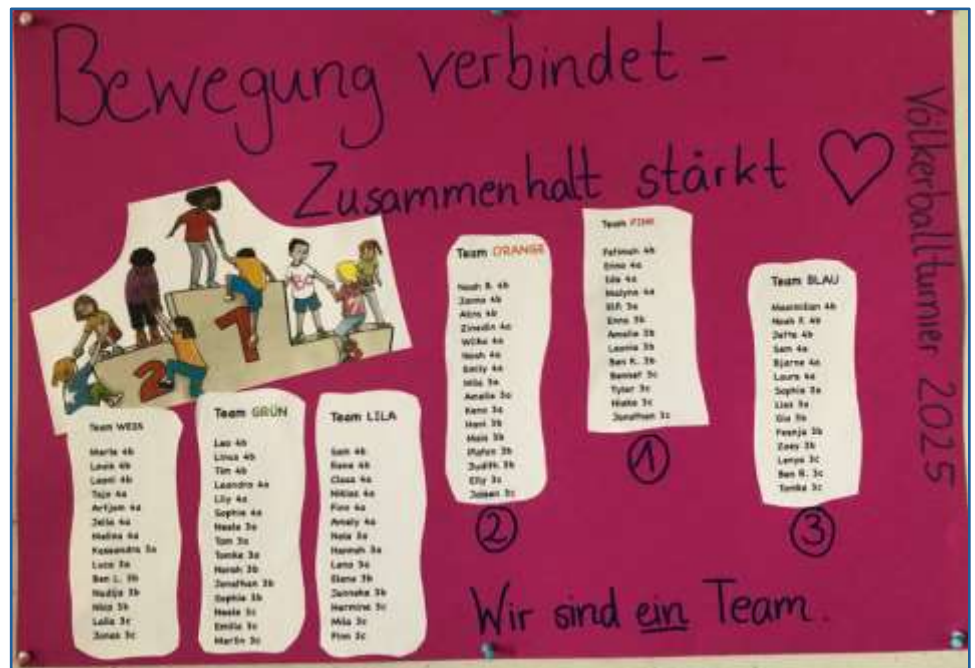 Bewegung verbindet -
Zusammenhalt stärkt
Völkerballturnier 2025
2 1
Team WEIß
Marla 4b
Louis 4b
Leoni 4b
Tajo 4a
Artjom 4a
Jella 4a
Malina 4a
Kassandra 3a
Luca 3a
Ben L. 3b
Nadija 3b
Nico 3b
Laila 3c
Jonas 3c
Team GRÜN
Leo 4b
Linus 4b
Tim 4b
Leandro 4a
Lily 4a
Sophie 4a
Neele 3a
Tom 3a
Tomke 3a
Norah 3b
Jonathan 3b
Sophie 3b
Neele 3c
Emilia 3c
Martin 3c
Team LILA
4b
4b
Claas 4a
Niklas 4a
Finn 4a
Amely 4a
Nele 3a
Hannah 3a
Lena 3a
Elena 3b
Janneke 3b
Hermine 3c
Mila 3c
Finn 3c
Team ORANGE
Noah B. 4b
Janno 4b
Alina 4b
Zinedin 4a
Wilko 4a
Noah 4a
Emily 4a
Mila 3a
Amelie 3a
Keno 3a
3b
3b
3b
Judith 3b
Elly 3c
3c
2
Team PINK
4b
4a
4a
4a
3a
Enno 3b
Amelie 3b
Leonie 3b
Ben K. 3b
Bennet 3c
Tyler 3c
Nieke 3c
Jonathan 3c
1
Team BLAU
Maximilian 4b
Noah F. 4b
Jette 4b
Sam 4a
Bjarne 4a
Laura 4a
Sophia 3a
3a
3a
3b
Zoey 3b
Lenya 3c
Ben R. 3c
Tomke 3c
3
Wir sind ein Team.